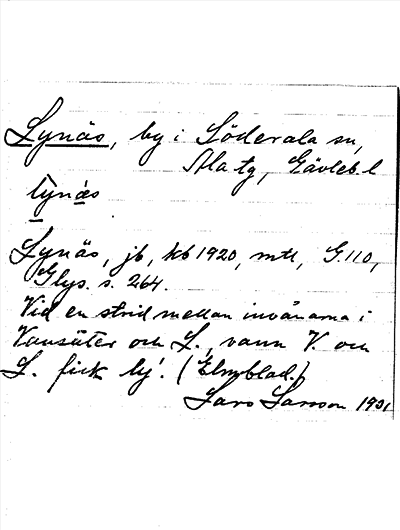 Lynäs, by i Söderala sn,
Ala tg, Gävleb. l
lynæs
Lynäs, jb, kb 1920, mtl, G.110,
Glys. s. 264.
Vid en strid mellan invånarna i
Vansäter och L., vann V. och
L. fick ly'. (Elmblad.)
Lars Larsson 1931